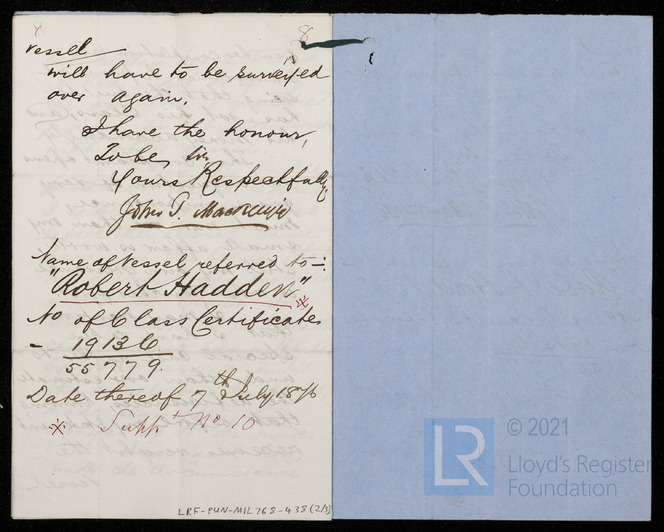 8
vessel
will have to be surveyed
over again.
I have the honour,
To be, Sir,
Yours Respectfully
John T. Mackenzie
Name of Vessel referred to —:
"Robert Hadden" *
No of Class Certificates
- 19136
55779.
Date thereof 7th July 1876
* Suppt No 10
LRF-PUN-MIL768-438(2/3)
LR © 2021
Lloyd's Register
Foundation